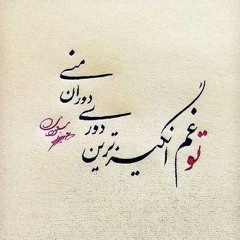 تو غم انگیزترین دوری دوران منی